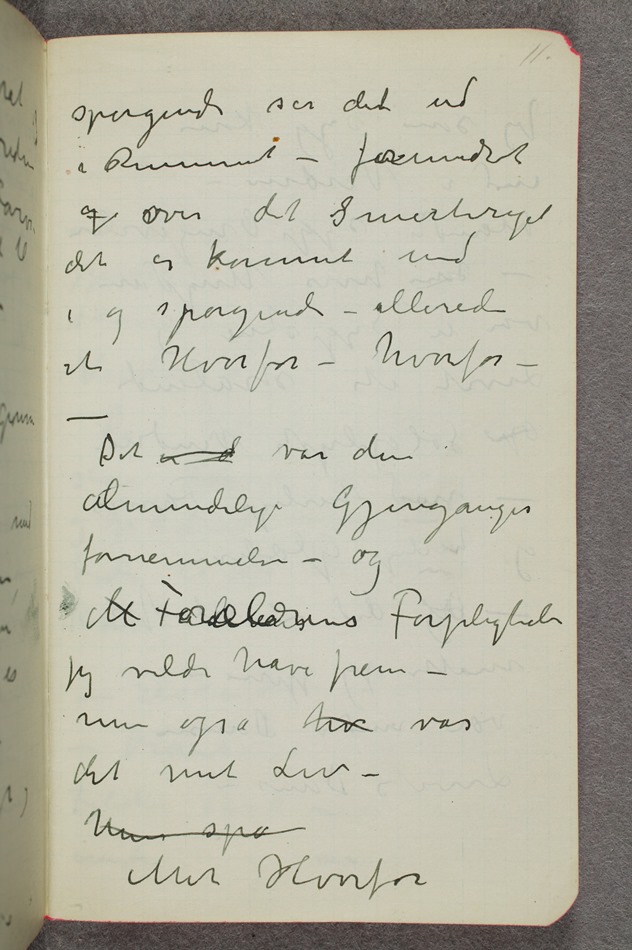 11.
spørgende ser det ud
i Rummet – forundret
og over det Smertesriget
det er kommet ind
i og spørgende – allerede
et Hvorfor – hvorfor –
—
Det var den
almindelige Gjenganger
fornemmelse – og
Forældrens Forpligtelse
jeg vilde have frem –
men også hv var
det mit Liv –
Men spø
Mit Hvorfor